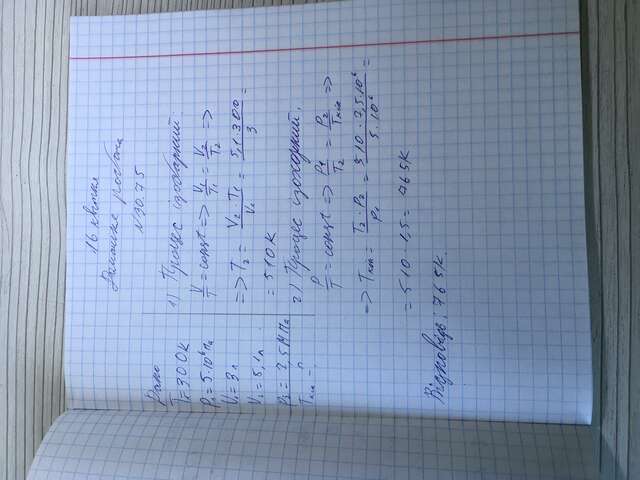 16 квітня
Домашня робота
№ 30.75
Дано
T₁=300К
P₁=5·10⁶Па
V₁=3л
V₂=5,1л
P₂=7,5МПа
Tкін-?
1) Процес ізобарний
V/T=const => V₁/T₁=V₂/T₂ =>
=> T₂ = V₂·T₁/V₁ = 5,1·300/3 =
= 510К
2) Процес ізохорний,
P/T=const => P₁/T₂=P₂/Tкін =>
=> Tкін = T₂·P₂/P₁ = 510·7,5·10⁶/5·10⁶ =
= 510·1,5 = 765К
Відповідь: 765К.